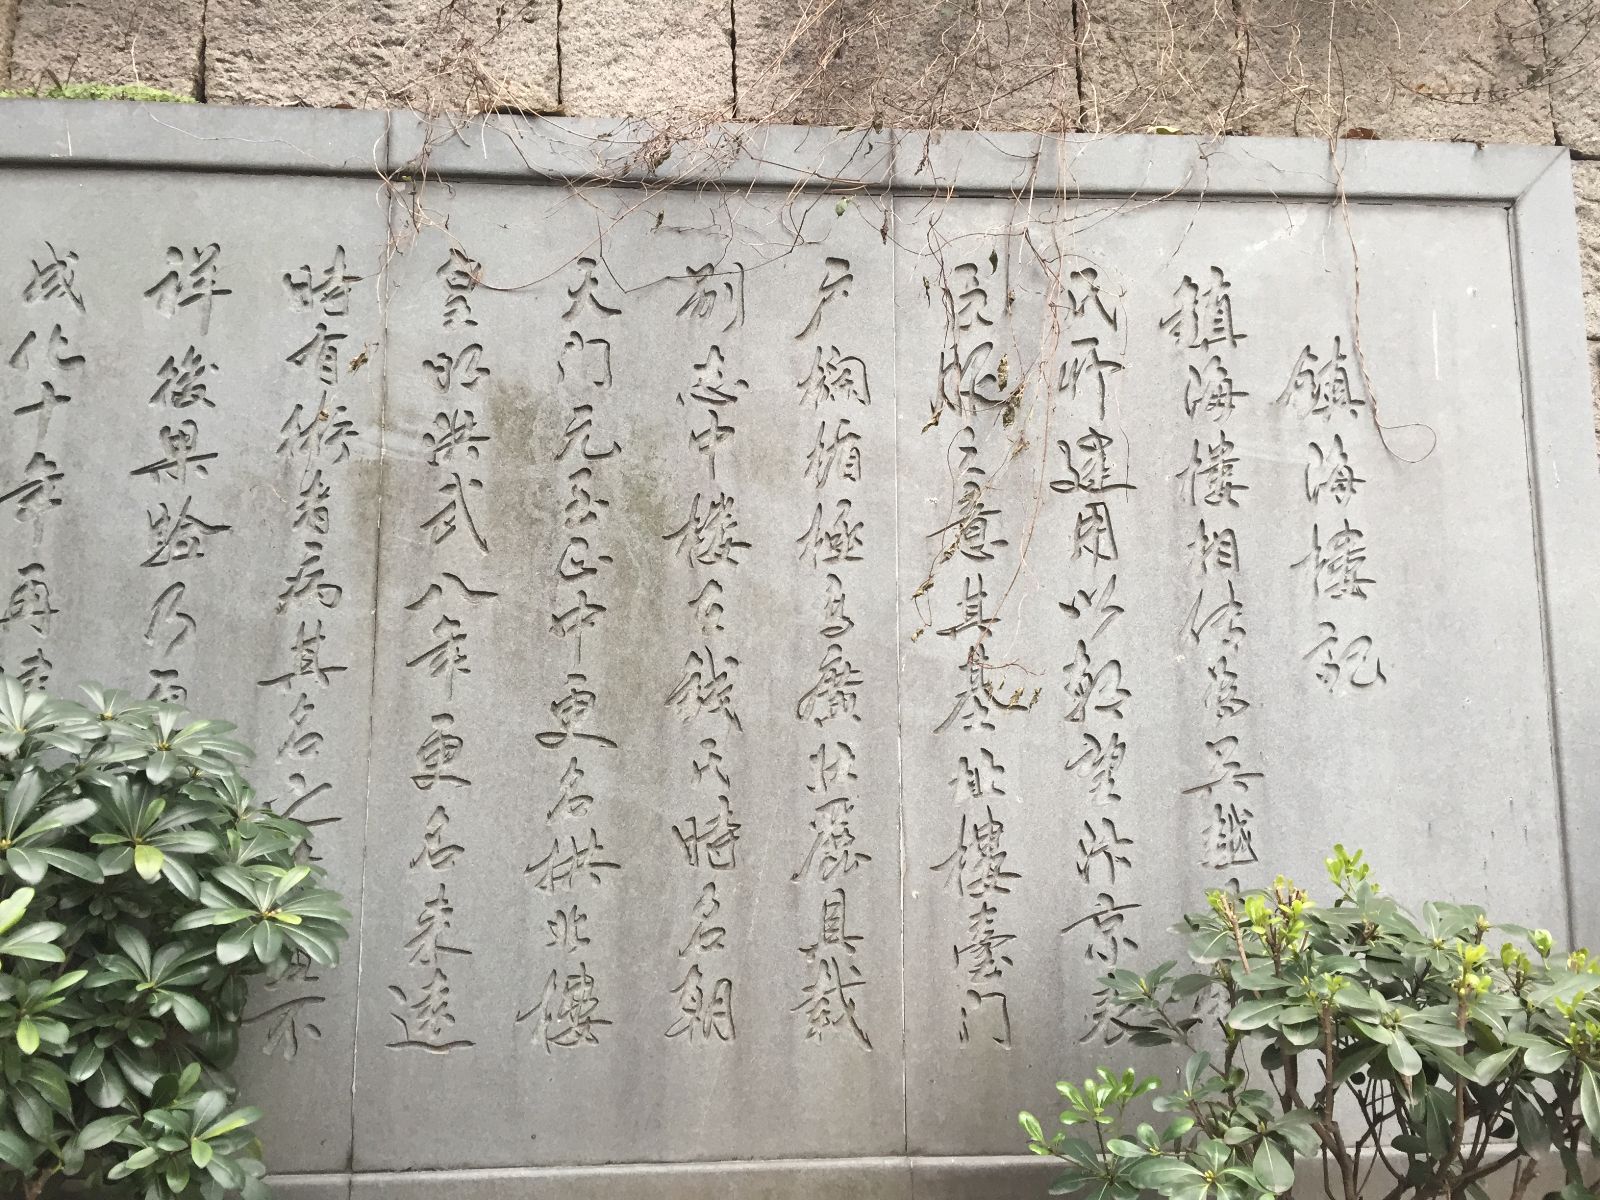 鎮海樓記
鎮海樓相傳為吳越
氏所建用以朝望汴京表
臣服之意其基址樓臺門
户欄楯極高廣壯麗具載
別志中樓在錢氏時名朝
天門元至正中更名拱北樓
皇明洪武八年更名來遠
時有術者病其名之不
祥後果驗乃更
成化十年再